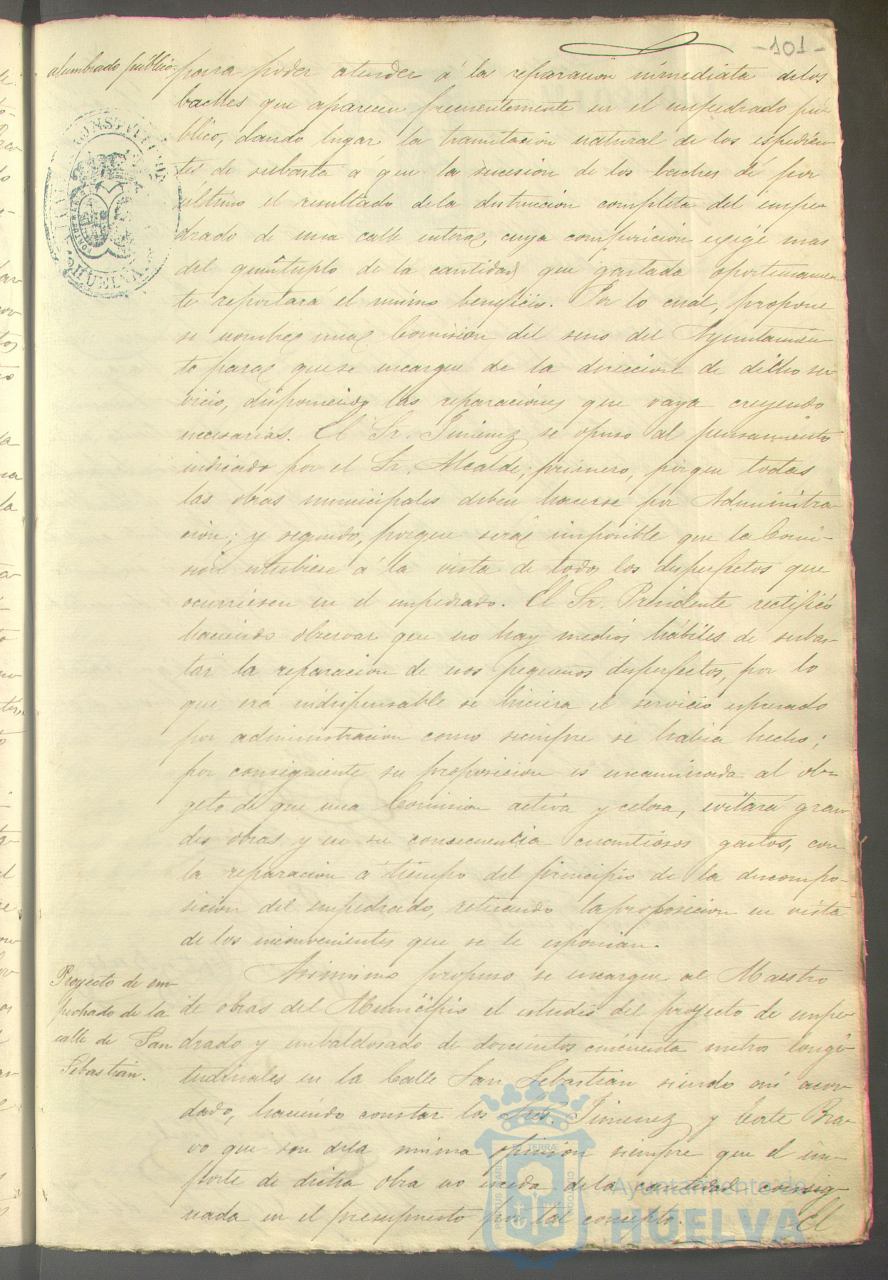 -101-
alumbrado publico.
para poder atender á la reparacion inmediata de los
baches que aparecen frecuentemente en el empedrado pú-
blico, dando lugar la tramitacion natural de los espedien-
tes de subasta á que la sucesion de los baches dé por
último el resultado de la destruccion completa del empe-
drado de una calle entera, cuya composicion exige mas
del quintuplo de la cantidad que gastada oportunamen-
te reportará el mismo beneficio. Por lo cual, propone
se nombre una Comision del seno del Ayuntamien-
to para que se encargue de la direccion de dicho ser-
vicio, disponiendo las reparaciones que vaya creyendo
necesarias. El Sr. Jimenez se opuso al pensamiento
indicado por el Sr. Alcalde; primero, porque todas
las obras municipales deben hacerse por Administra-
cion; y segundo, porque será imposible que la Comi-
sion estubiese á la vista de todos los desperfectos que
ocurriesen en el empedrado. El Sr. Presidente rectificó
haciendo observar que no hay medios hábiles de subas-
tar la reparacion de esos pequeños desperfectos, por lo
que era indispensable se hiciera el servicio espresado
por administracion como siempre se habia hecho;
por consiguiente su proposicion es encaminada al ob-
geto de que una Comision activa y celosa, evitará gran-
des obras y en su consecuencia cuantiosos gastos, con
la reparacion á tiempo del principio de la descompo-
sicion del empedrado, retirando la proposicion en vista
de los inconvenientes que se le esponian.
Proyecto de em-
pedrado de la
calle de San
Sebastian.
Asimismo propuso se encargue al Maestro
de obras del Municipio el estudio del proyecto de empe-
drado y embaldosado de doscientos cincuenta metros longi-
tudinales en la Calle San Sebastian siendo asi acor-
dado, haciendo constar los Sres. Jimenez y Corte Bra-
vo que son de la misma opinion siempre que el im-
porte de dicha obra no exceda de la cantidad consig-
nada en el presupuesto por tal concepto. El
HUELVA
Ayuntamiento de
HUELVA